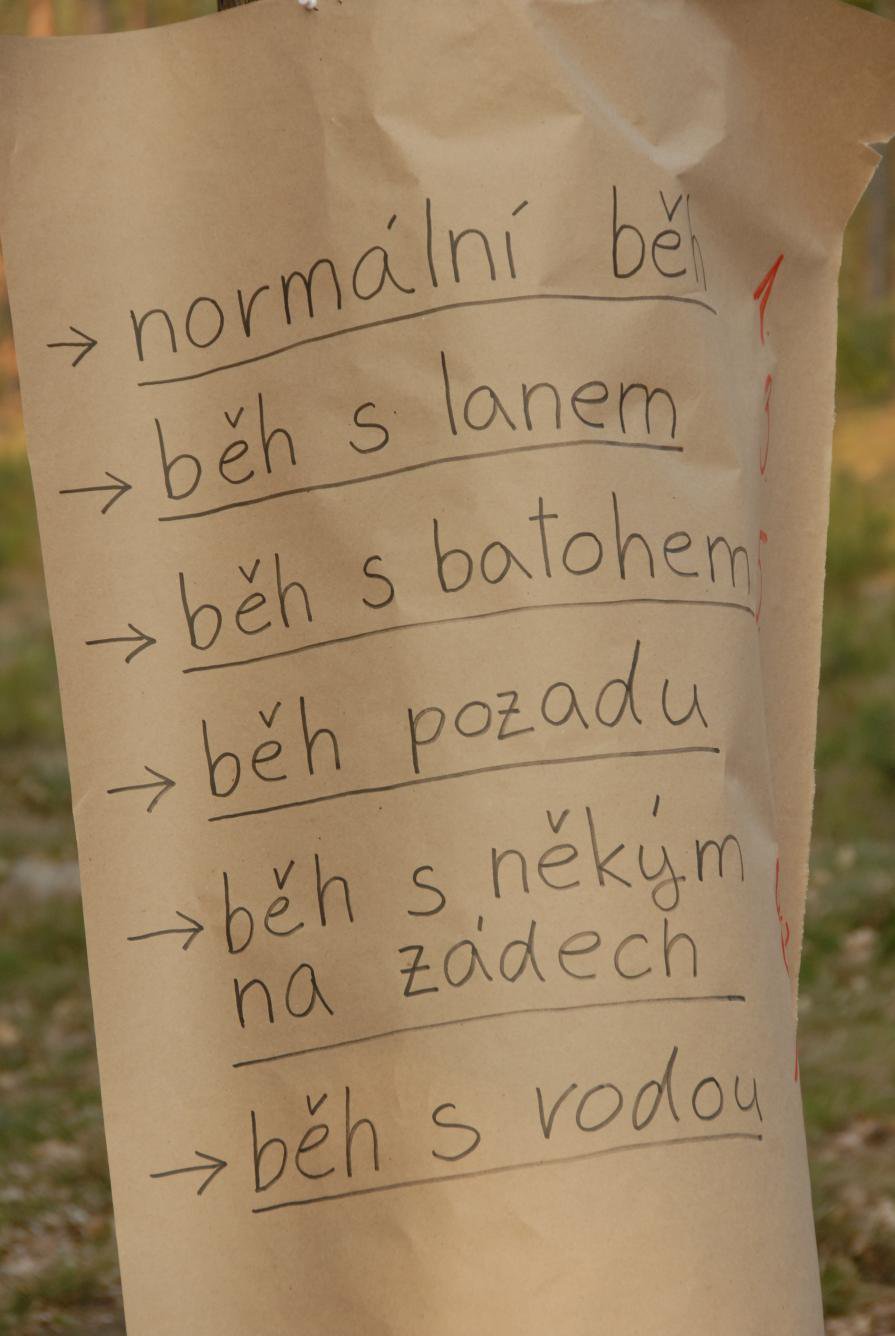 → normální běh 1.
→ běh s lanem 3
→ běh s batohem 5
→ běh pozadu
→ běh s někým
na zádech
→ běh s vodou